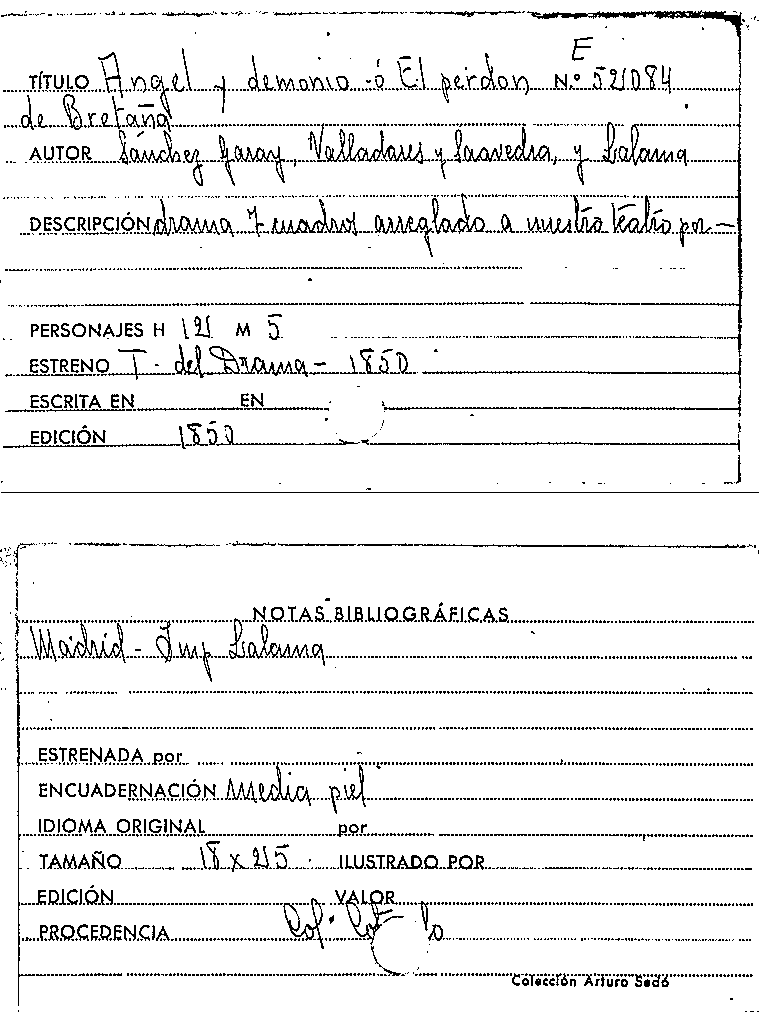 E
TÍTULO Angel y demonio -ó El perdon N.º 521084
de Bretaña
AUTOR Sánchez Garay, Valladares y Saavedra, y Lalama
DESCRIPCIÓN drama 7 cuadros arreglado a nuestro teatro por —
PERSONAJES H 12 M 5
ESTRENO T. del Drama - 1850
ESCRITA EN EN
EDICIÓN 1850
NOTAS BIBLIOGRÁFICAS
Madrid - Imp Lalama
ESTRENADA por
ENCUADERNACIÓN Media piel
IDIOMA ORIGINAL por
TAMAÑO 18 x 25 ILUSTRADO POR
EDICIÓN VALOR
PROCEDENCIA Col.
Colección Arturo Sedó